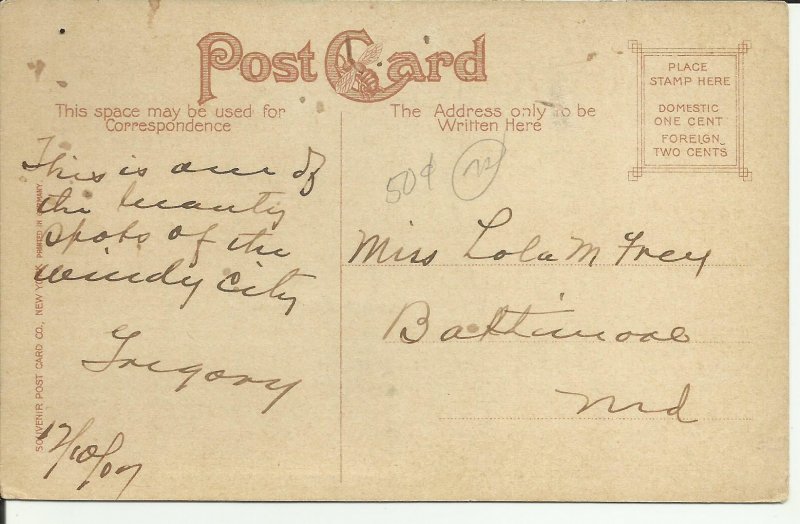 Post Card
This space may be used for
Correspondence
The Address only to be
Written Here
PLACE
STAMP HERE
DOMESTIC
ONE CENT
FOREIGN
TWO CENTS
This is one of
the beauty
spots of the
windy city
Gregory
12/10/07
50¢
Miss Lola M Frey
Baltimore
Md
SOUVENIR POST CARD CO., NEW YORK. PRINTED IN GERMANY.